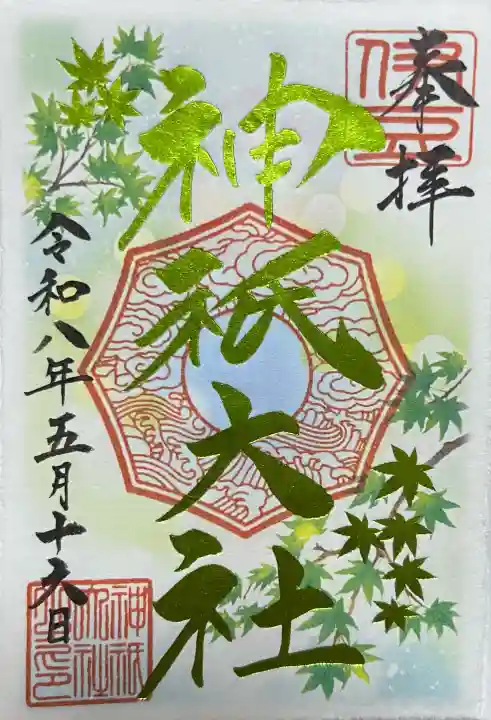 伊豆
奉拝
神祇大社
令和八年五月十六日
神祇
大社
之印